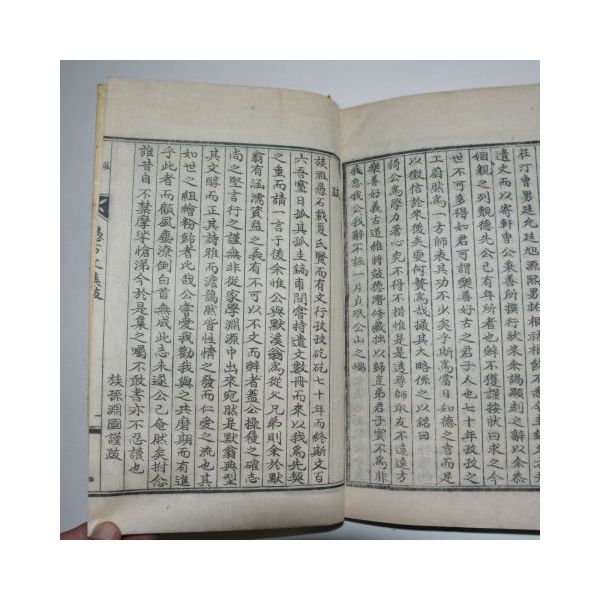 在汀曾男廷允廷旭源熙男
遺文而以寄軒曺公秉善所撰行狀來余謁顯刻之辭以余忝
姻親之列覿德先公已有年所者也辭不獲謹按狀曰求之今
世不可多得如君可謂樂善好古之君子人也七十年孜孜之
工蔚然爲一方師表其功不少矣乎斯爲當日如德之言而足
以徵信於來後夫更何贊爲哉撮其大略係之以銘曰
猗公爲學力著心究不得不措惟是透尋師取友不遠遠方
樂善好義古道維將斂德潛修藏拙以歸豈弟君子實不爲非
我思我公我辭不誣一片貞珉公山之
跋
族祖愚石戴夏氏賢而有文行孜孜矻矻七十年而終斯文百
六吾黨日孤其孤圭鎬甫間嘗持遺文數冊而來以我爲先契
之重而請一言于後余惟公與默溪翁爲從父兄弟則余於默
翁有涵濡資益之義有不可以不文而辭者蓋公操履之確志
尚之堅言行之謹無非從家學淵源中出來宛然是默翁典型
其文醇而正其詩雅而澹藹然皆性情之發而仁愛之流也其
如世之組繪粉飾者比哉公嘗愛我勸我與之共磨期而有進
乎此者而顧風塵潦倒白首無成此志未遂公已奄然矣拊念
誰昔自不禁摩挲愴涕今於是集之囑不敢書亦不忍讀也
族孫淵國謹跋
跋
愚石文集跋
一